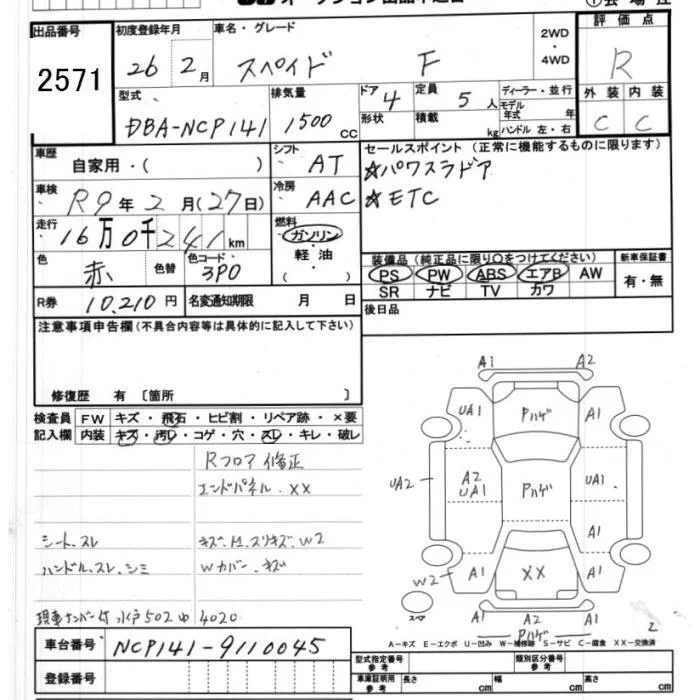 オークション出品申込書
出品番号
2571
初度登録年月
26年 2月
車名・グレード
スペイド F
2WD
・
4WD
評価点
R
外装 内装
C C
型式
DBA-NCP141
排気量
1500cc
ドア 4
形状
定員 5人
積載 kg
ディーラー・並行
モデル年式 年
ハンドル 左・右
車歴
自家用・( )
シフト
AT
セールスポイント (正常に機能するものに限ります)
☆パワスラドア
☆ETC
車検
R9年 2月 (27日)
冷房
AAC
走行
16万0千241km
燃料
ガソリン
・
軽油
・
( )
色
赤
色替
色コード
3P0
装備品 (純正品に限り○をつけてください)
PS PW ABS エアB AW
SR ナビ TV カワ
新車保証書
有・無
R券 10,210円
名変通知期限 月 日
後日品
注意事項申告欄 (不具合内容等は具体的に記入して下さい)
修復歴 有 〔箇所 〕
検査員記入欄
FW キズ・飛石・ヒビ割・リペア跡・×要
内装 キズ・汚レ・コゲ・穴・スレ・キレ・破レ
Rフロア修正
エンドパネル.XX
シート.スレ
キズ.凹.スリキズ.W2
ハンドル.スレ.シミ
Wカバー.キズ
現車ナンバー付 水戸502ゆ4020
A1 A2
UA1 Pハゲ A1
UA2 A2 UA1 Pハゲ UA1
A1
W2 A1 XX A1
スペア
A1 A2 A1
Pハゲ
A-キズ E-エクボ U-凹み W-補修跡 S-サビ C-腐食 XX-交換済
車台番号
NCP141-9110045
登録番号
型式指定番号 参考
類別区分番号 参考
車庫証明用 参考
長さ cm
幅 cm
高さ cm